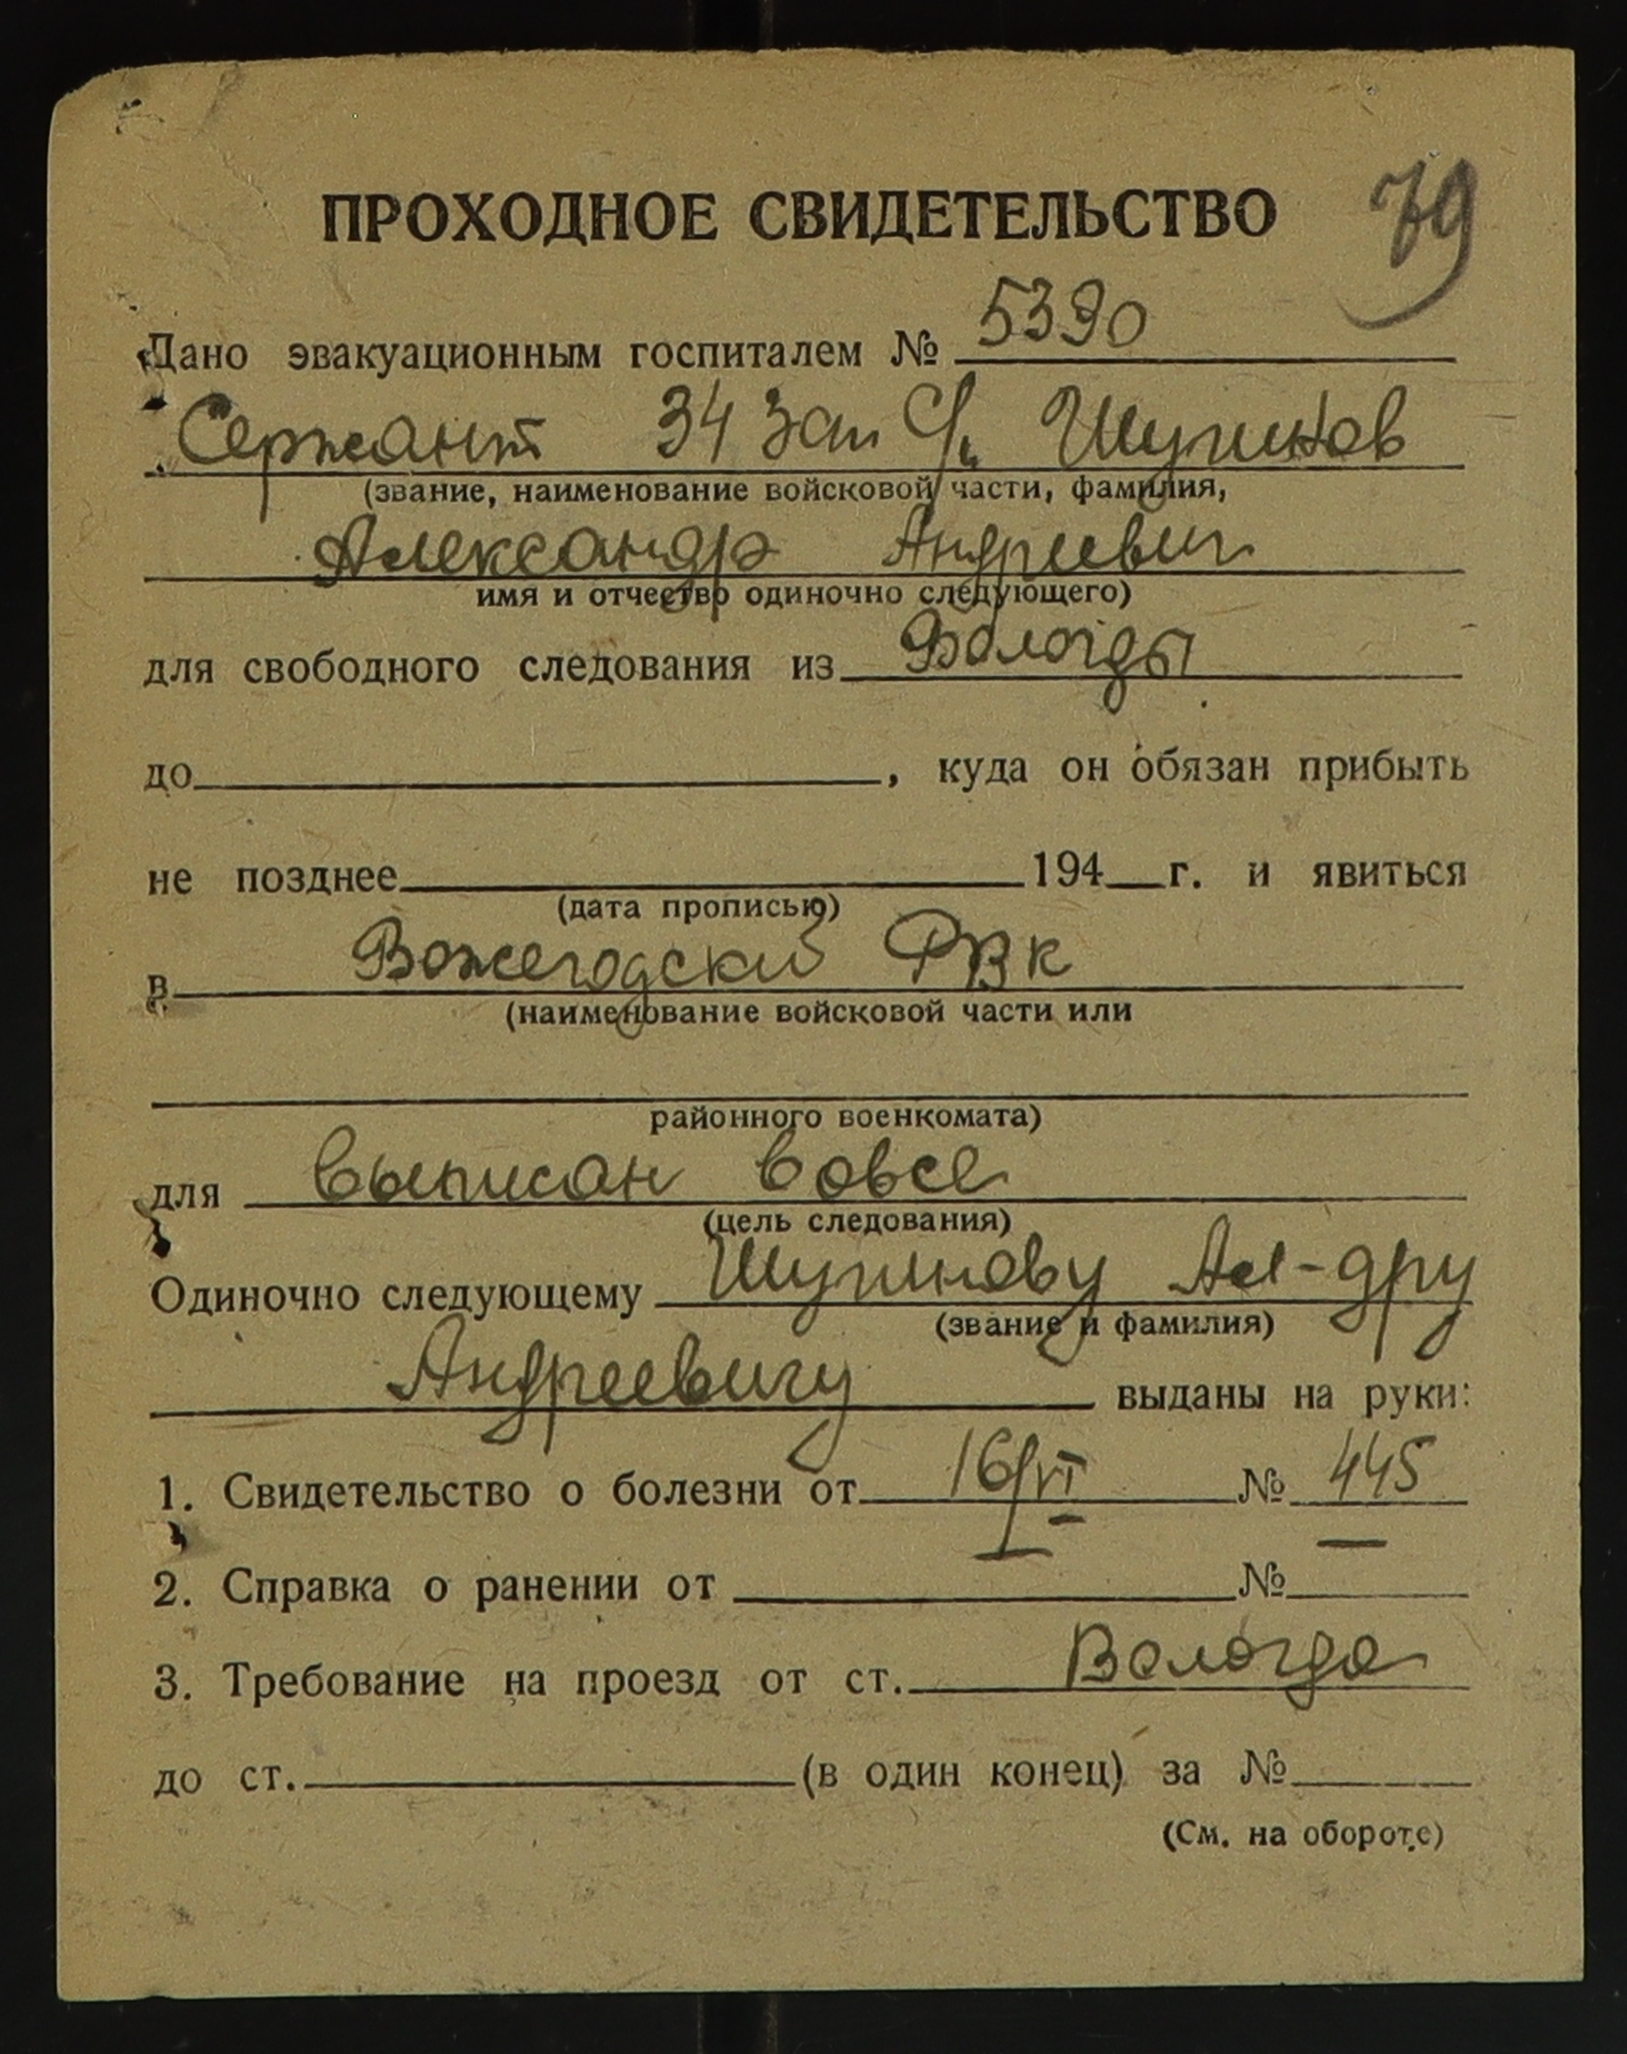 79
ПРОХОДНОЕ СВИДЕТЕЛЬСТВО
Дано эвакуационным госпиталем № 5390
Сержант 34 зап С/п Шугинов
(звание, наименование войсковой части, фамилия,
Александр Андреевич
имя и отчество одиночно следующего)
для свободного следования из Вологды
до , куда он обязан прибыть
не позднее 194 г. и явиться
(дата прописью)
в Вожегодский РВК
(наименование войсковой части или
районного военкомата)
для выписан вовсе
(цель следования)
Одиночно следующему Шугинову Ал-дру
(звание и фамилия)
Андреевичу выданы на руки:
1. Свидетельство о болезни от 16/VI № 445
2. Справка о ранении от — № —
3. Требование на проезд от ст. Вологда
до ст. (в один конец) за №
(См. на обороте)